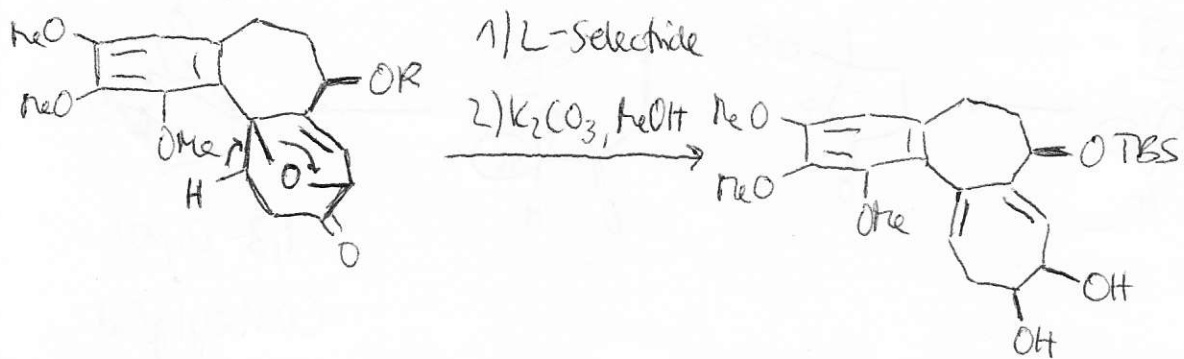 MeO
MeO
OMe
OR
H
O
O
1) L-Selectride
2) K₂CO₃, MeOH
MeO
MeO
OMe
OTBS
OH
OH